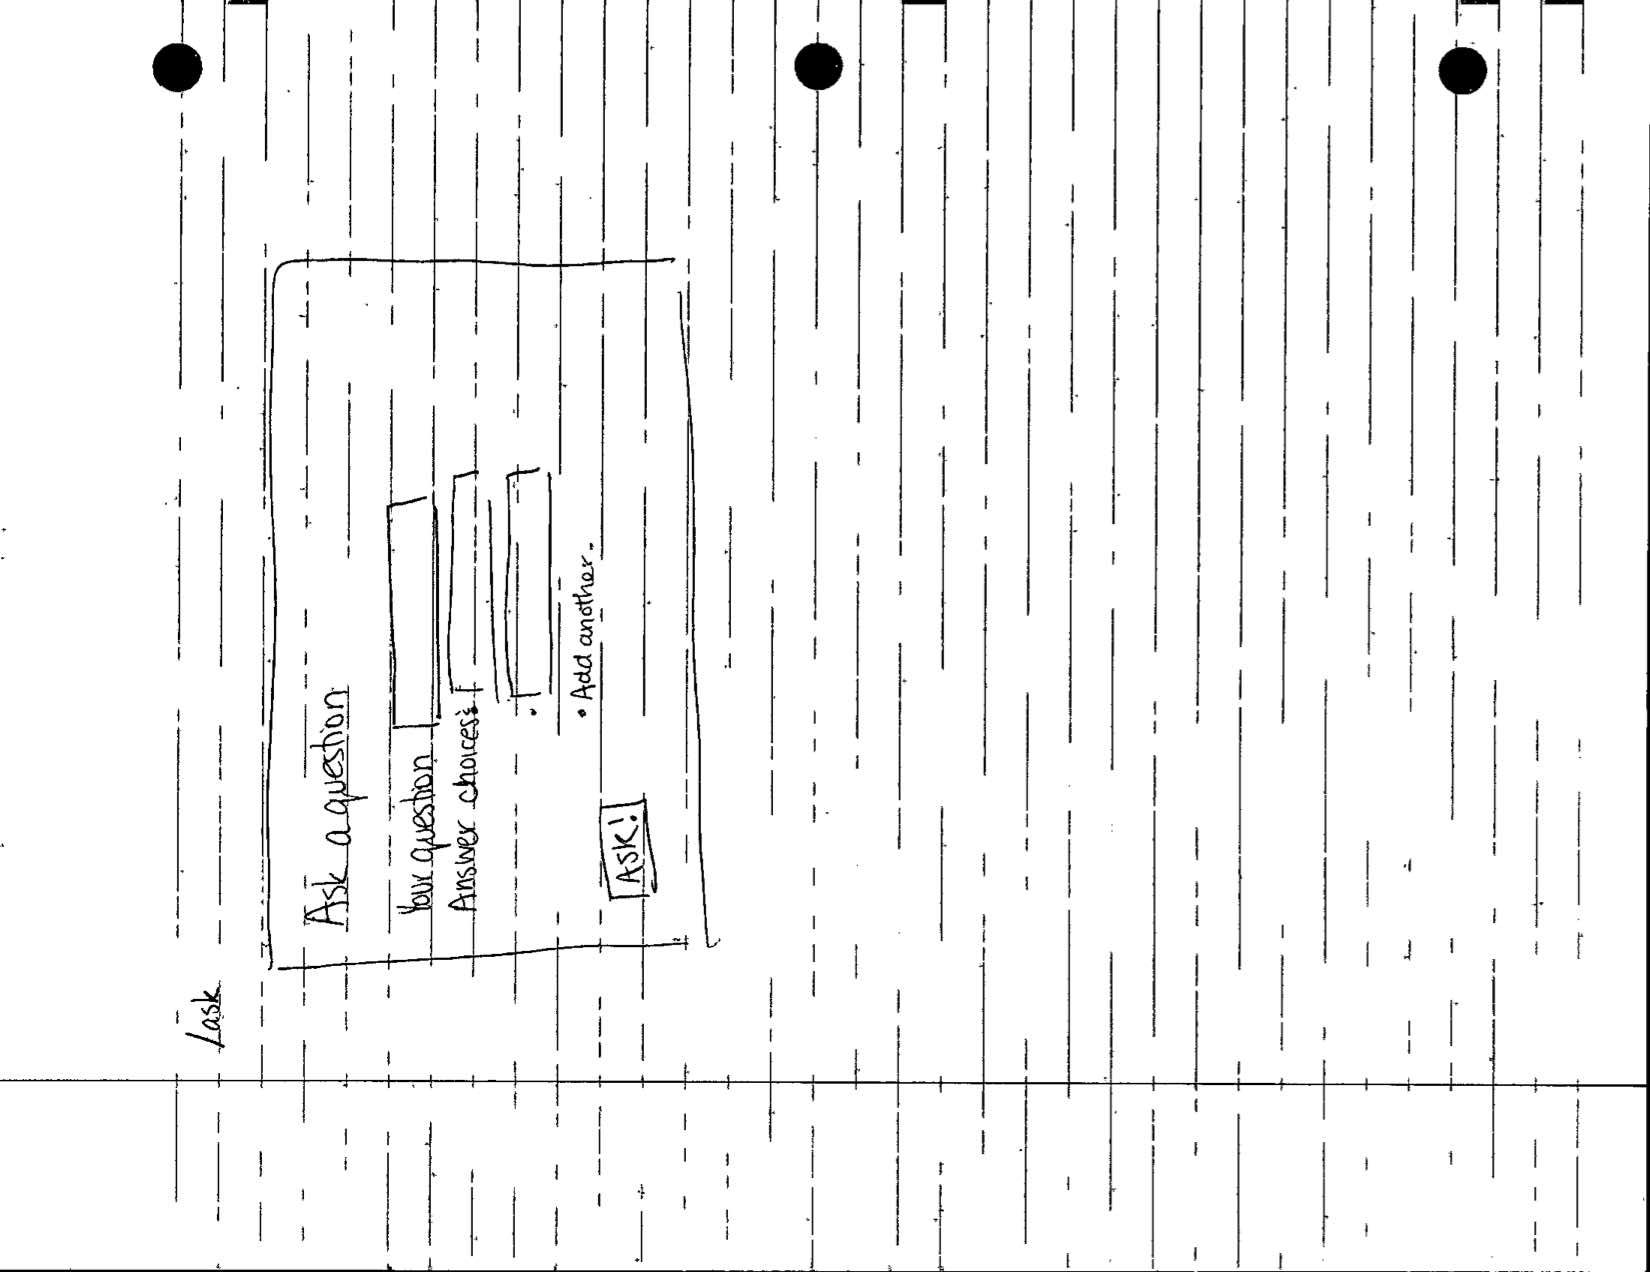 /ask
Ask a question
Your question
Answer choices:
• Add another.
Ask!